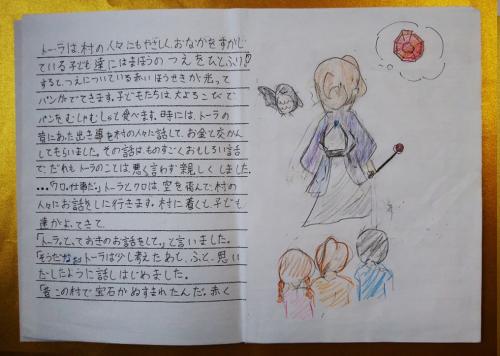 トーラは、村の人々にもやさしく、おなかをすかし
ている子ども達にはまほうのつえをひとふり!!
すると、つえについている赤いほうせきが光って
パンがでてきます。子どもたちは大よろこびで
パンをむしゃむしゃと食べます。時には、トーラの
昔にあった出き事を村の人々に話して、お金と交かん
してもらいました。その話はものすごくおもしろい話
で、だれもトーラのことは、悪く言わず親しくしました。
…「クロ、仕事だ。」トーラとクロは、空を飛んで、村の
人々にお話をしに行きます。村に着くと、子ども
達がよってきて、
「トーラ、とっておきのお話をして。」と言いました。
「そうだなぁ」トーラは少し考えたあと、ふと、思い
だしたように話しはじめました。
「昔この村で宝石がぬすまれたんだ。赤く